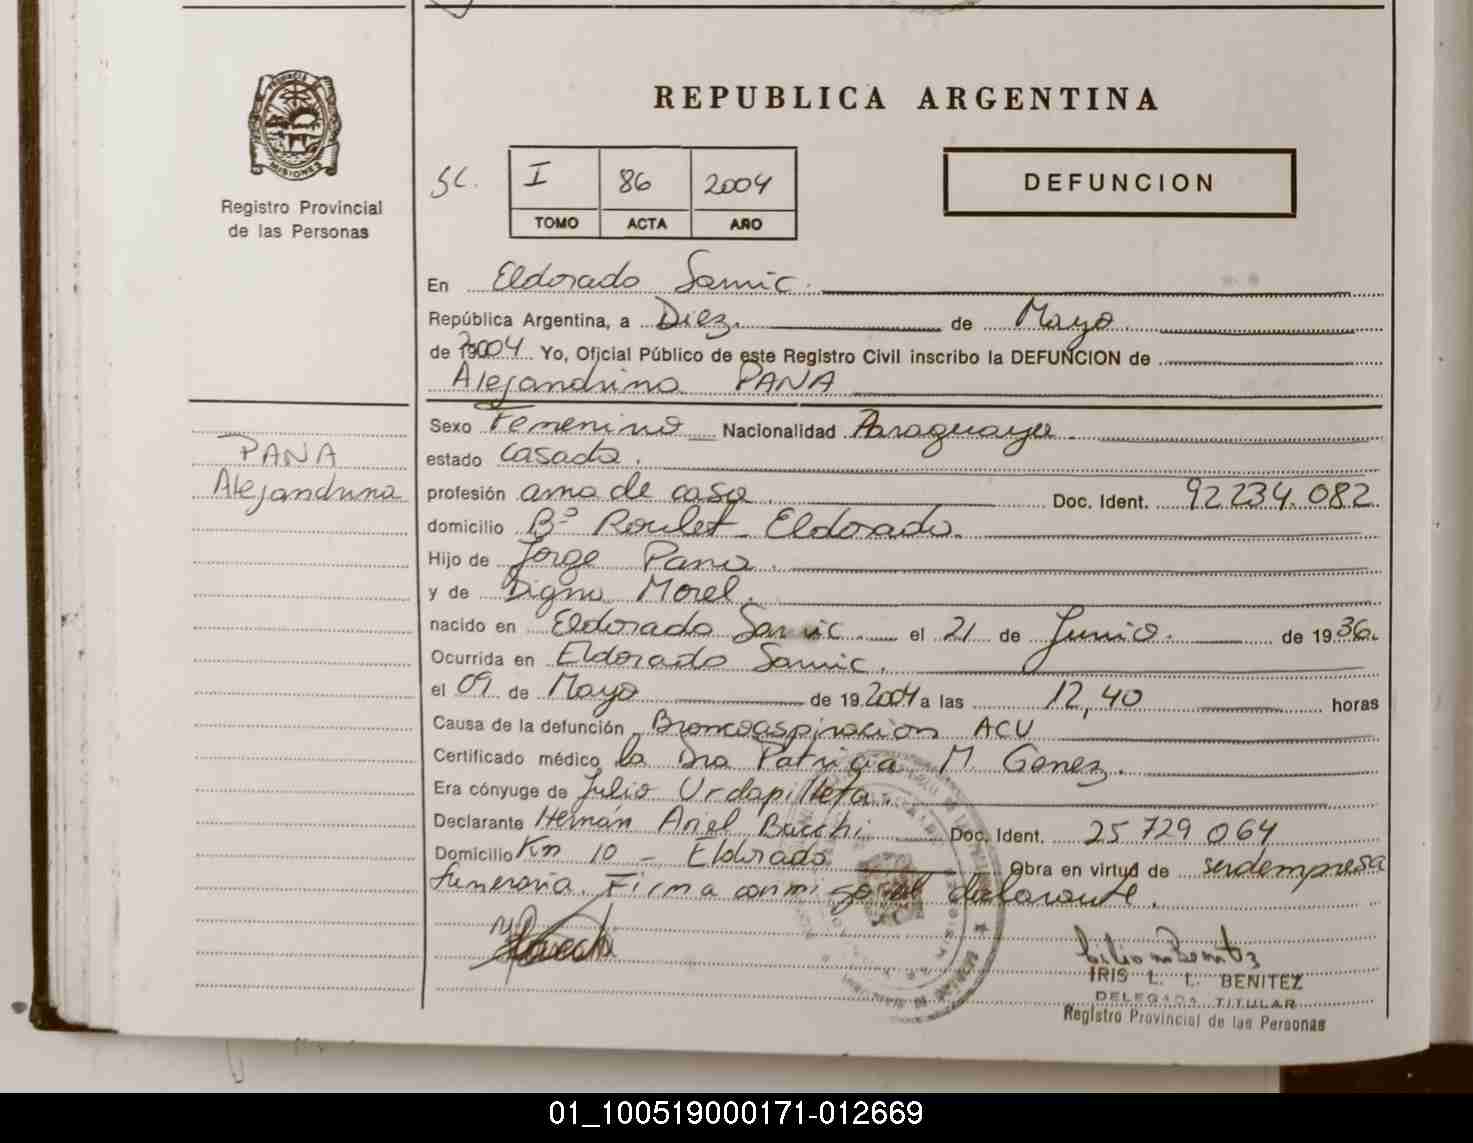 REPUBLICA ARGENTINA
PROVINCIA DE
MISIONES
Registro Provincial
de las Personas
SC. I 86 2004
TOMO ACTA AÑO
DEFUNCION
En Eldorado Samic.
República Argentina, a Diez. de Mayo
de 2004 Yo, Oficial Público de este Registro Civil inscribo la DEFUNCION de
Alejandrina PANA
PANA
Alejandrina
Sexo Femenino Nacionalidad Paraguaya.
estado Casada.
profesión ama de casa Doc. Ident. 92.234.082
domicilio Bº Roulet - Eldorado.
Hijo de Jorge Pana.
y de Digna Morel.
nacido en Eldorado Samic. el 21 de Junio. de 1936.
Ocurrida en Eldorado Samic.
el 09 de Mayo de 19 2004 a las 12,40 horas
Causa de la defunción Broncoaspiracion ACV
Certificado médico la Dra Patricia M. Gomez.
Era cónyuge de Julio Urdapilleta.
Declarante Hernán Ariel Bacchi Doc. Ident. 25 729 064
Domicilio Km 10 - Eldorado Obra en virtud de ser de empresa
funeraria. Firma conmigo el declarante.
IRIS L. L. BENITEZ
DELEGADA TITULAR
Registro Provincial de las Personas
01_100519000171-012669